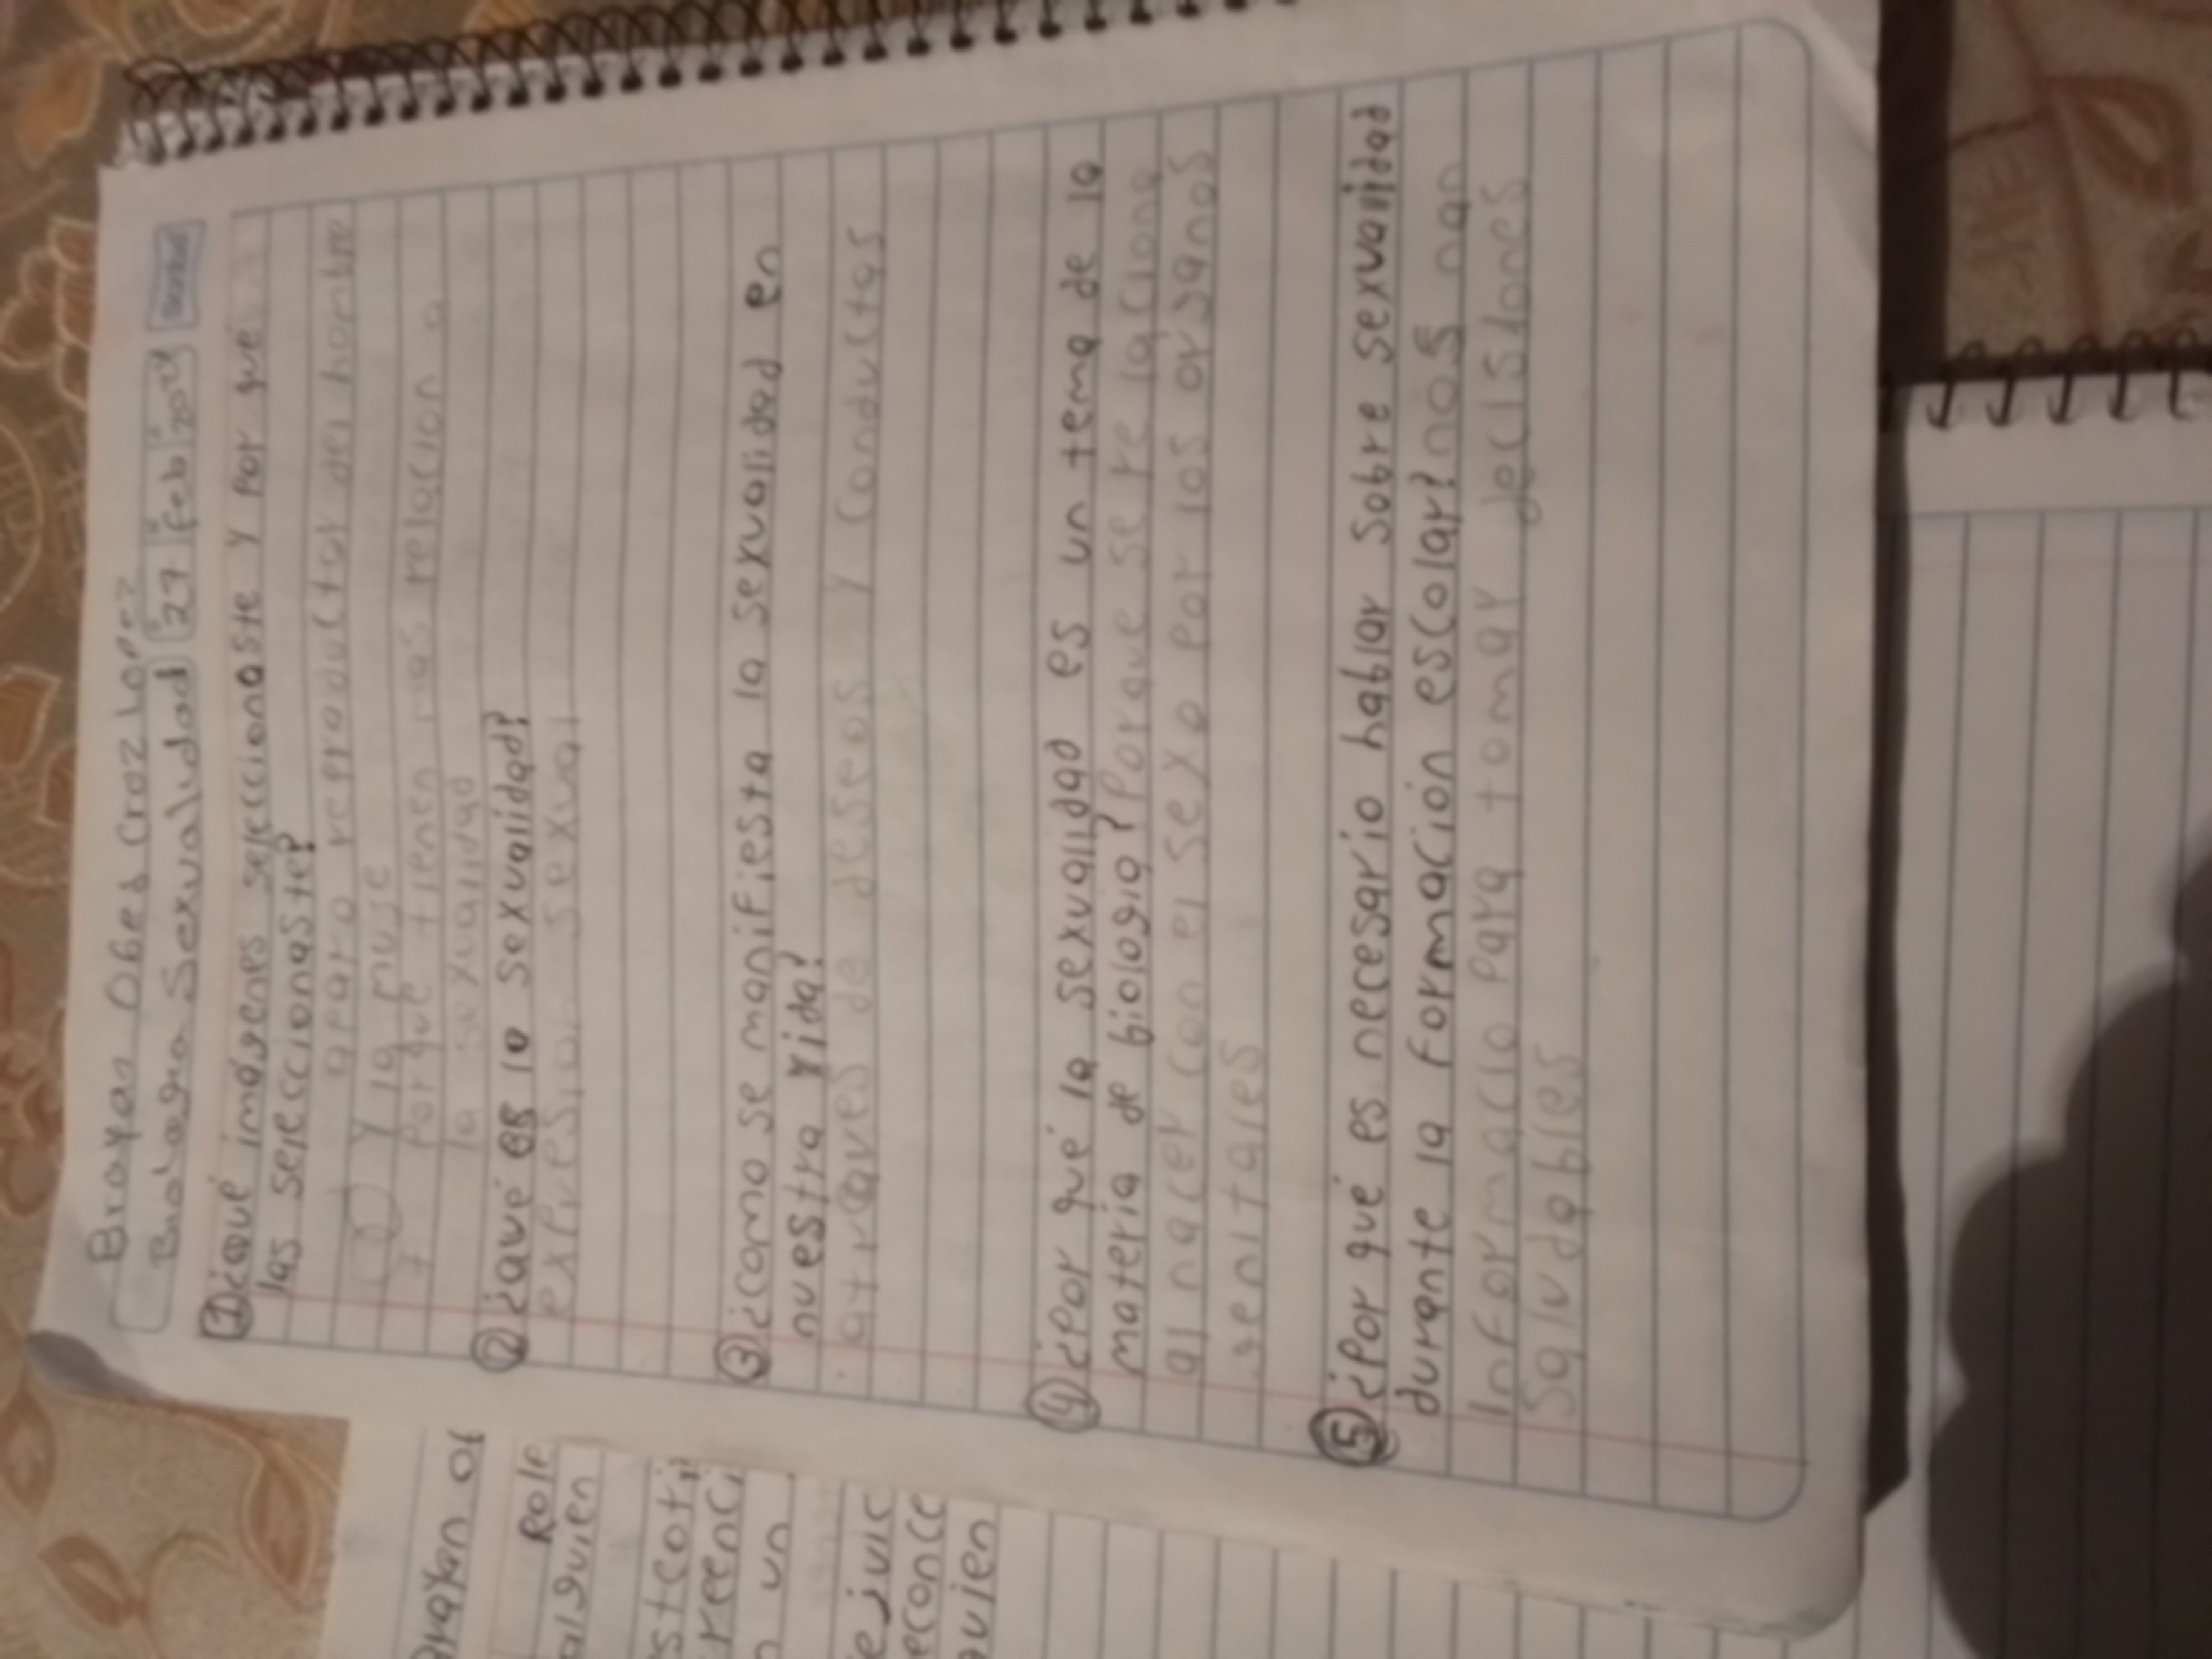 Brayan Obed Cruz Lopez
Biología Sexualidad 27 Feb 2024
① ¿qué imágenes seleccionaste y por qué
las seleccionaste?
aparo reproductor del hombre
y la muse
porque tienen mas relacion a
la sexualidad
② ¿qué es la sexualidad?
expresion sexual
③ ¿como se manifiesta la sexualidad en
nuestra vida?
atraves de deseos y conductas
④ ¿Por qué la sexualidad es un tema de la
materia de biologia? Porque se relaciona
al nacer con el sexo por los organos
genitales
⑤ ¿Por qué es necesario hablar sobre sexualidad
durante la formación escolar? nos nan
informacio para tomar decisiones
saludables
Role
alguien
un
quien